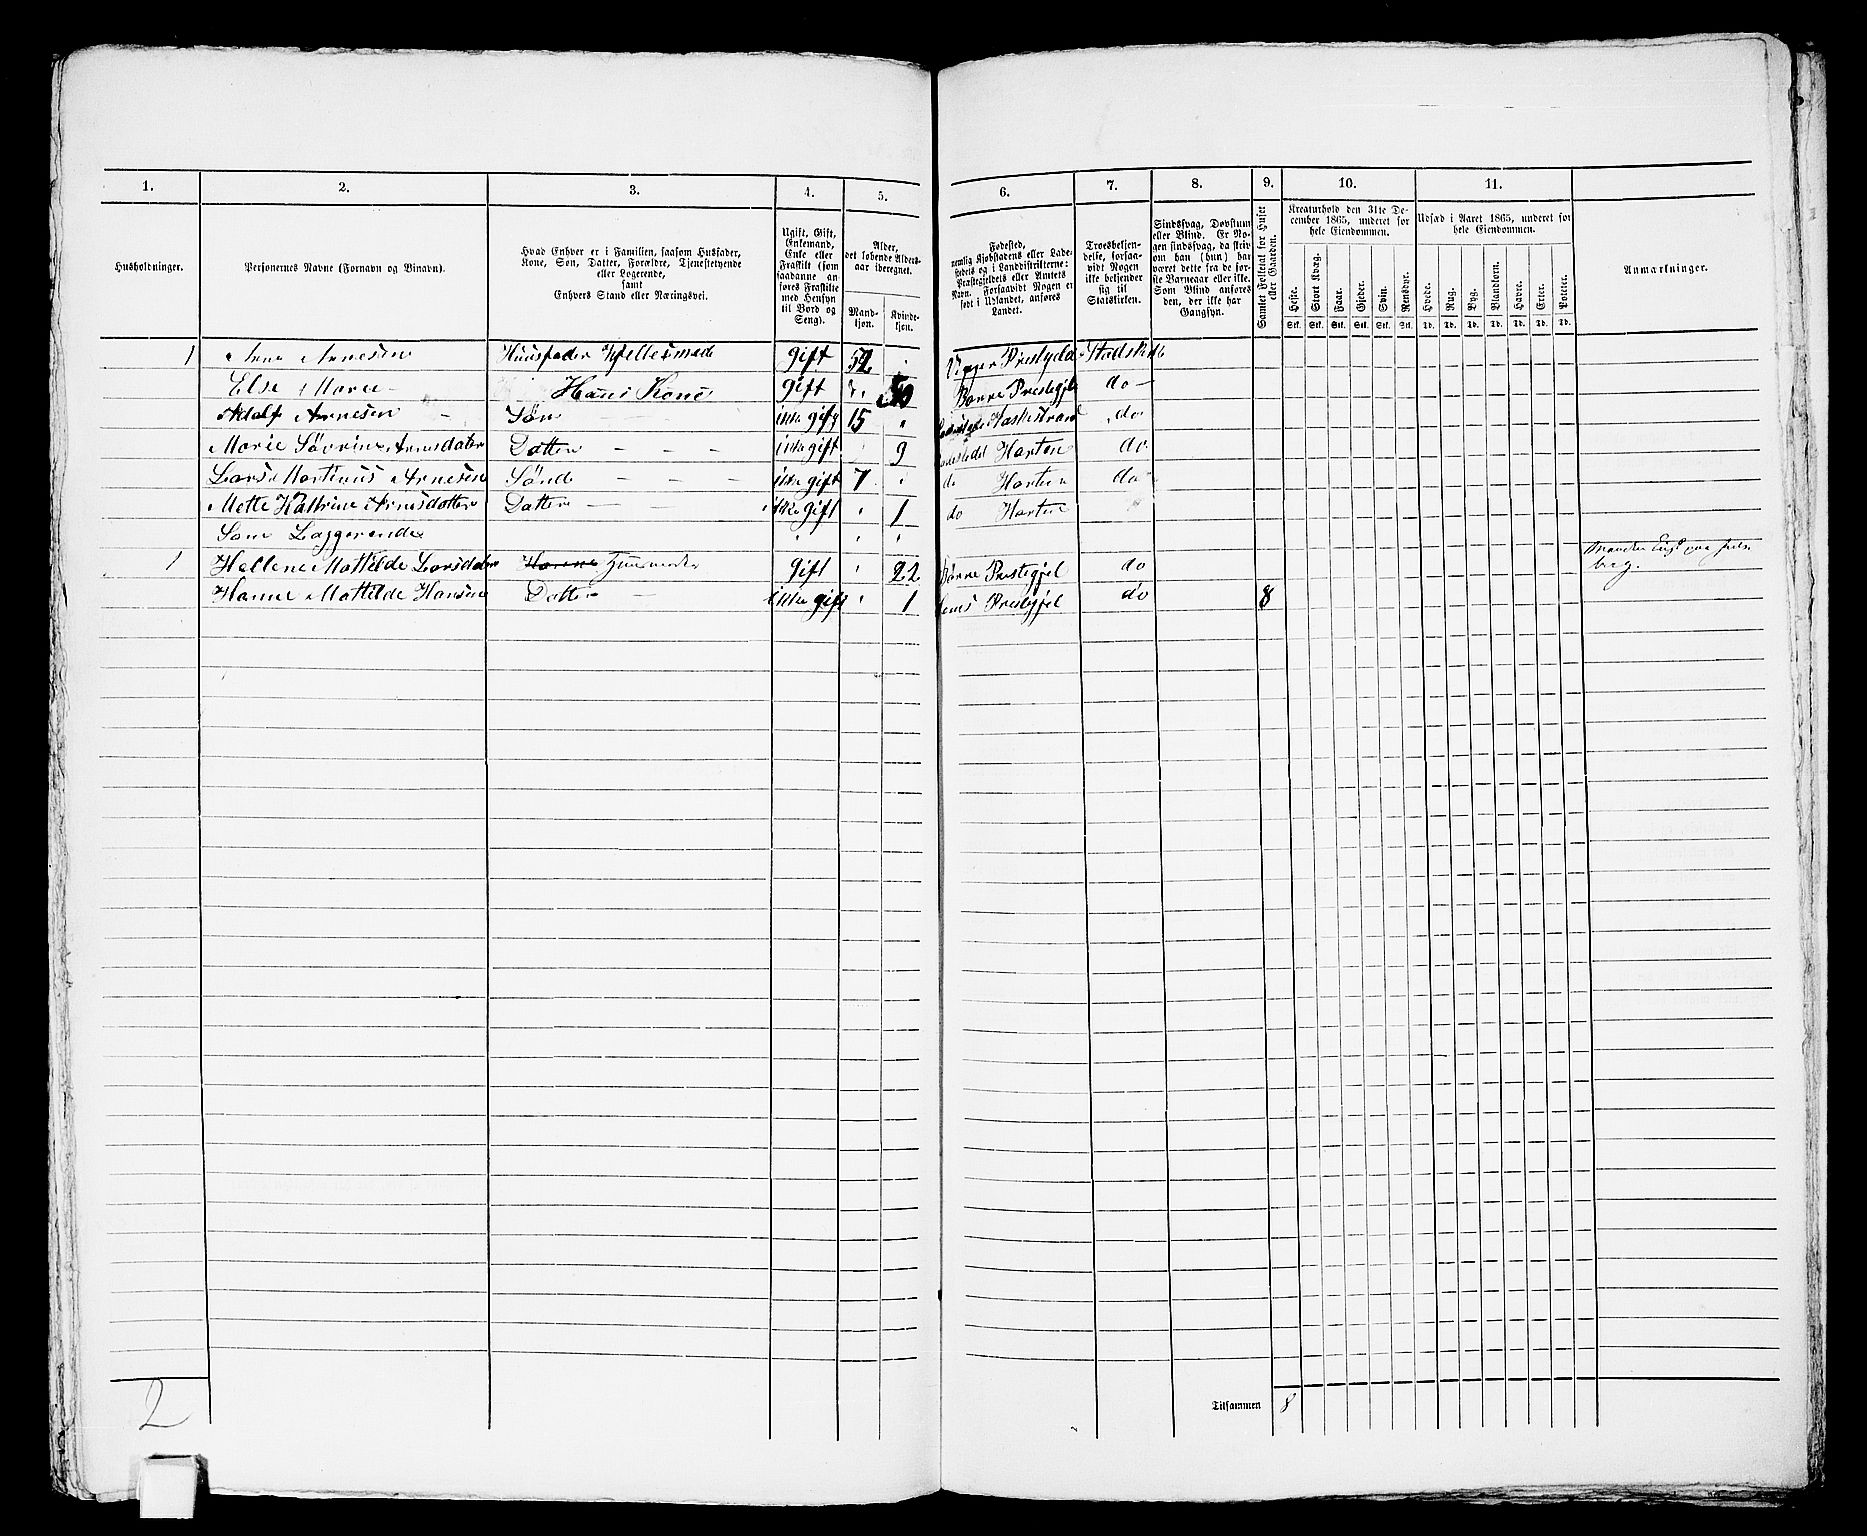 1. 2. 3. 4. 5. 6. 7. 8. 9. 10. 11.
Husholdninger.
Personernes Navne (Fornavn og Binavn).
Hvad Enhver er i Familien, saasom Husfader,
Kone, Søn, Datter, Forældre, Tjenestetyende
eller Logerende,
samt
Enhvers Stand eller Næringsvei.
Ugift, Gift,
Enkemand,
Enke eller
Fraskilt (som
saadanne an-
føres Fraskilte
med Hensyn
til Bord og
Seng).
Alder,
det løbende Alders-
aar iberegnet.
Mand-
kjøn.
Kvinde-
kjøn.
Fødested,
nemlig Kjøbstadens eller Lade-
stedets og i Landdistrikterne:
Præstegjeldets eller Amtets
Navn. Forsaavidt Nogen er
født i Udlandet, anføres
Landet.
Troesbekjen-
delse, forsaa-
vidt Nogen
ikke bekjender
sig til
Statskirken.
Sindssvag, Døvstum
eller Blind. Er No-
gen sindssvag, da skriv
om han (hun) har
været dette fra de før-
ste Barneaar eller ikke.
Som Blind anføres
den, der ikke har
Gangsyn.
Samlet Folketal for Huset
eller Gaarden.
Kreaturhold den 31te De-
cember 1865, underet for
hele Eiendommen.
Heste. Stort Kvæg. Faar. Gjeder. Svin. Rensdyr.
Stk. Stk. Stk. Stk. Stk. Stk.
Udsæd i Aaret 1865, underet for
hele Eiendommen.
Hvede. Rug. Byg. Blandkorn. Havre. Erter. Poteter.
Td. Td. Td. Td. Td. Td. Td.
Anmærkninger.
1 Arne Arnesen Huusfader gift 52
Else Marie Hans Kone gift 50 Borre Prestegjel do
Adolf Arnesen Søn ikke gift 15 do
Marie Søvrine Arnesdater Datter ikke gift 9 Ladestedet Horten do
Lars Martinus Arnesen Sønd ikke gift 7 do Horten do
Mette Kathrine Arnesdotter Datter ikke gift 1 do Horten
Som Loggerende
1 Hellene Mattilde Larsdater Huusmoder gift 22 Borre Prestegjel do
Hanne Mattilde Hansen Datter ikke gift 1 Prestegjel do 8
2
Tilsammen 8